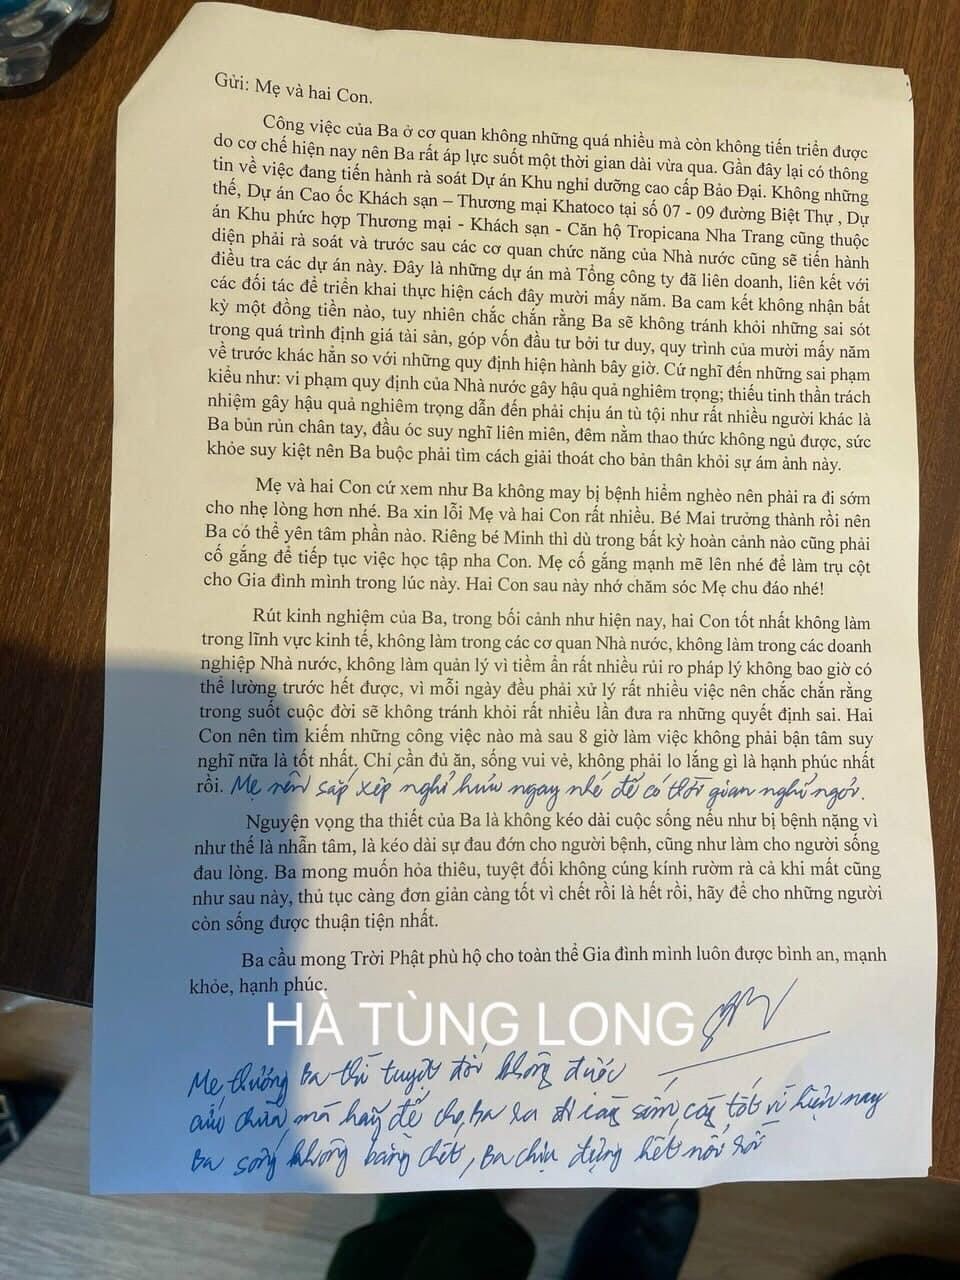 Gửi: Mẹ và hai Con.
Công việc của Ba ở cơ quan không những quá nhiều mà còn không tiến triển được
do cơ chế hiện nay nên Ba rất áp lực suốt một thời gian dài vừa qua. Gần đây lại có thông
tin về việc đang tiến hành rà soát Dự án Khu nghỉ dưỡng cao cấp Bảo Đại. Không những
thế, Dự án Cao ốc Khách sạn – Thương mại Khatoco tại số 07 - 09 đường Biệt Thự , Dự
án Khu phức hợp Thương mại - Khách sạn - Căn hộ Tropicana Nha Trang cũng thuộc
diện phải rà soát và trước sau các cơ quan chức năng của Nhà nước cũng sẽ tiến hành
điều tra các dự án này. Đây là những dự án mà Tổng công ty đã liên doanh, liên kết với
các đối tác để triển khai thực hiện cách đây mười mấy năm. Ba cam kết không nhận bất
kỳ một đồng tiền nào, tuy nhiên chắc chắn rằng Ba sẽ không tránh khỏi những sai sót
trong quá trình định giá tài sản, góp vốn đầu tư bởi tư duy, quy trình của mười mấy năm
về trước khác hẳn so với những quy định hiện hành bây giờ. Cứ nghĩ đến những sai phạm
kiểu như: vi phạm quy định của Nhà nước gây hậu quả nghiêm trọng; thiếu tinh thần trách
nhiệm gây hậu quả nghiêm trọng dẫn đến phải chịu án tù tội như rất nhiều người khác là
Ba bủn rủn chân tay, đầu óc suy nghĩ liên miên, đêm nằm thao thức không ngủ được, sức
khỏe suy kiệt nên Ba buộc phải tìm cách giải thoát cho bản thân khỏi sự ám ảnh này.
Mẹ và hai Con cứ xem như Ba không may bị bệnh hiểm nghèo nên phải ra đi sớm
cho nhẹ lòng hơn nhé. Ba xin lỗi Mẹ và hai Con rất nhiều. Bé Mai trưởng thành rồi nên
Ba có thể yên tâm phần nào. Riêng bé Minh thì dù trong bất kỳ hoàn cảnh nào cũng phải
cố gắng để tiếp tục việc học tập nha Con. Mẹ cố gắng mạnh mẽ lên nhé để làm trụ cột
cho Gia đình mình trong lúc này. Hai Con sau này nhớ chăm sóc Mẹ chu đáo nhé!
Rút kinh nghiệm của Ba, trong bối cảnh như hiện nay, hai Con tốt nhất không làm
trong lĩnh vực kinh tế, không làm trong các cơ quan Nhà nước, không làm trong các doanh
nghiệp Nhà nước, không làm quản lý vì tiềm ẩn rất nhiều rủi ro pháp lý không bao giờ có
thể lường trước hết được, vì mỗi ngày đều phải xử lý rất nhiều việc nên chắc chắn rằng
trong suốt cuộc đời sẽ không tránh khỏi rất nhiều lần đưa ra những quyết định sai. Hai
Con nên tìm kiếm những công việc nào mà sau 8 giờ làm việc không phải bận tâm suy
nghĩ nữa là tốt nhất. Chỉ cần đủ ăn, sống vui vẻ, không phải lo lắng gì là hạnh phúc nhất
rồi. Mẹ nên sắp xếp nghỉ hưu ngay nhé để có thời gian nghỉ ngơi.
Nguyện vọng tha thiết của Ba là không kéo dài cuộc sống nếu như bị bệnh nặng vì
như thế là nhẫn tâm, là kéo dài sự đau đớn cho người bệnh, cũng như làm cho người sống
đau lòng. Ba mong muốn hỏa thiêu, tuyệt đối không cúng kính rườm rà cả khi mất cũng
như sau này, thủ tục càng đơn giản càng tốt vì chết rồi là hết rồi, hãy để cho những người
còn sống được thuận tiện nhất.
Ba cầu mong Trời Phật phù hộ cho toàn thể Gia đình mình luôn được bình an, mạnh
khỏe, hạnh phúc.
HÀ TÙNG LONG
Mẹ thương Ba thì tuyệt đối không được
cứu chữa mà hãy để cho Ba ra đi càng sớm, càng tốt vì hiện nay
Ba sống không bằng chết, Ba chịu đựng hết nổi rồi